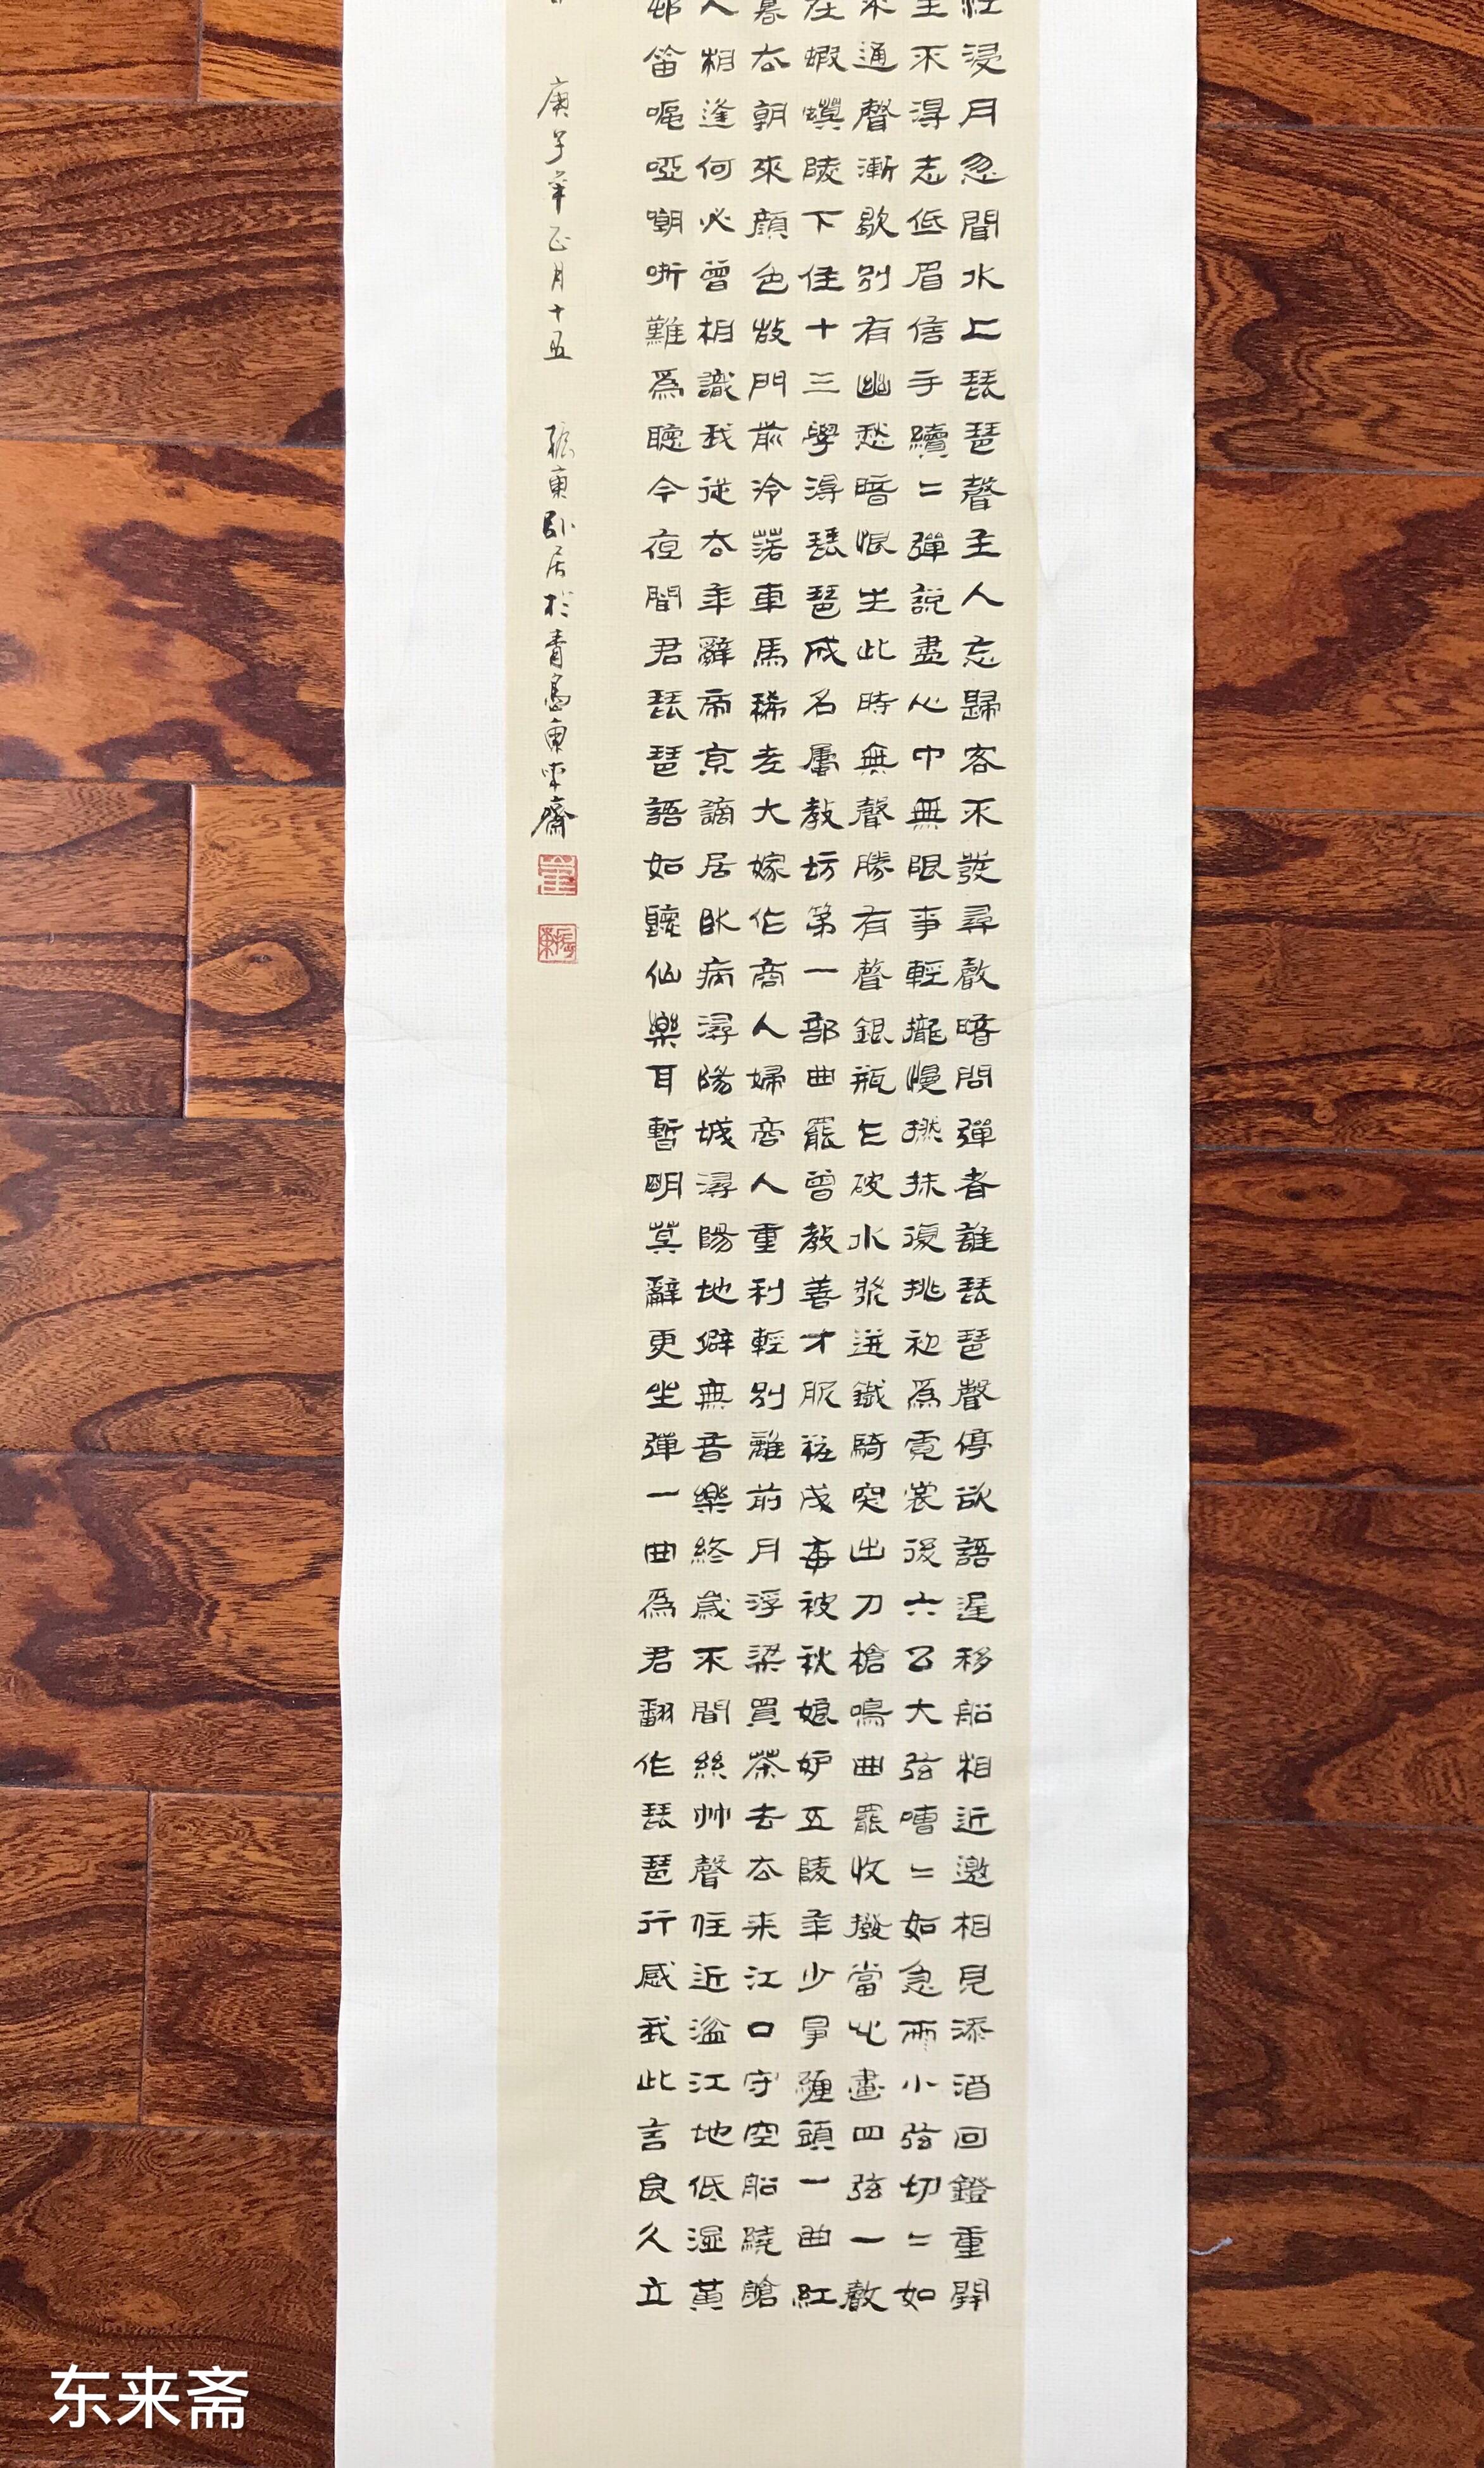 江浸月忽聞水上琵琶聲主人忘歸客不發尋聲暗問彈者誰琵琶聲停欲語遲移船相近邀相見添酒回鐙重開
生不得志低眉信手續〻彈說盡心中無限事輕攏慢撚抹復挑初為霓裳後六公大弦嘈〻如急雨小弦切〻如
不通聲漸歇別有幽愁暗恨生此時無聲勝有聲銀瓶乍破水漿迸鐵騎突出刀槍鳴曲罷收撥當心畫四弦一聲
在蝦蟆陵下住十三學得琵琶成名屬教坊第一部曲罷曾教善才服粧成每被秋娘妒五陵年少爭纏頭一曲紅
暮去朝來顏色故門前冷落車馬稀老大嫁作商人婦商人重利輕別離前月浮梁買茶去去来江口守空船繞艙
人相逢何必曾相識我從去年辭帝京謫居臥病潯陽城潯陽地僻無音樂終歲不聞絲竹聲住近湓江地低濕黃
邨笛嘔啞嘲哳難為聽今夜聞君琵琶語如聽仙樂耳暫明莫辭更坐彈一曲為君翻作琵琶行感我此言良久立
庚子年正月十五 振東臥居於青島東來齋
东来斋